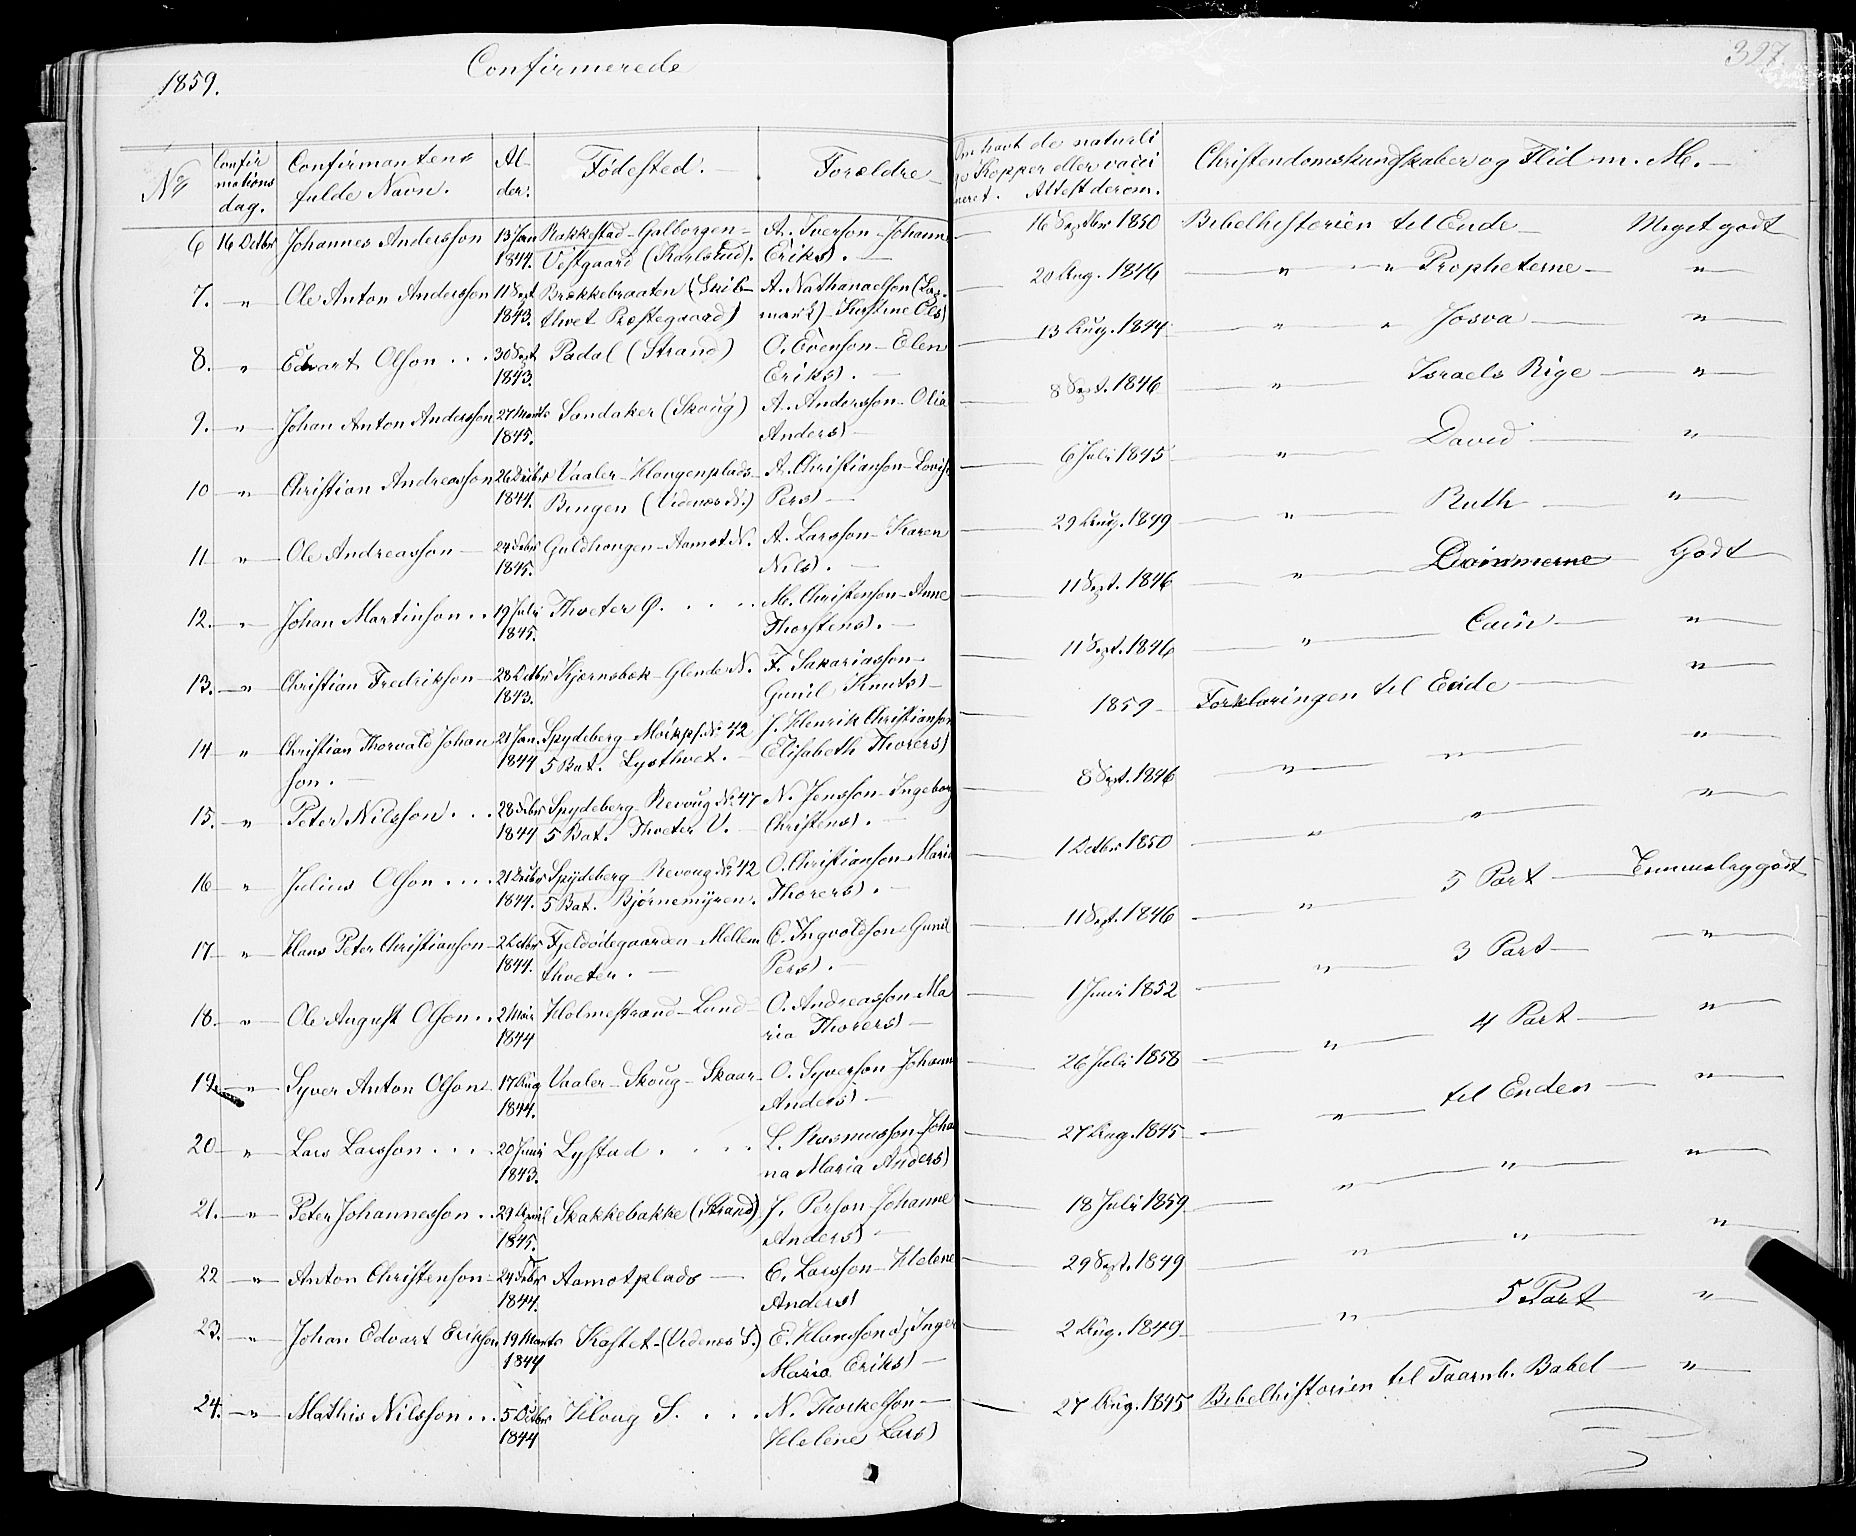 1859.
Confirmerede
327.
No
Confir
mations
dag.
Confirmantens
fulde Navn.
Al-
der.
Fødested.
Forældre
Om havt de naturli
ge Kopper eller vacci
neret. Attest derom.
Christendomskundskaber og Flid m. M.
6 16 Octbr Johannes Andersson 13 Jan Rakkestad - Gulborgen - A. Iverson - Johanne 16 Septbr 1850 Bibelhistorien til Ende Meget godt
1844. Vestgaard (Karlstad). Eriks).
7. " Ole Anton Andersson 11 Sept Brækkebraaten ( A. Nathanaelson 20 Aug. 1846 " " Propheterne "
1843. thvet Præstegaard) Kirstine Ols)
8. " Edvart Olson 30 Sept Padal (Strand) O. Evenson - Elen 13 Aug. 1844 " " Josva "
1843. Eriks).
9. " Johan Anton Andersson 27 Marts Sandaker (Skoug) A. Andersson - Olia 8 Sept. 1846 " Israels Rige "
1845. Anders)
10 " Christian Andreasson 26 Vaaler - Haugenplads A. Christianson - Lovise 6 Juli 1845 " David "
1844. Bingen (Videnes N.) Pers)
11 " Ole Andreasson 24 Febr Guldhougen - Aamot N. A. Larsson - Karen 29 Aug. 1849 " Ruth "
1845. Nils).
12. " Johan Martinson 19 Juli Thveter Ø. M. Christenson - Anne 11 Sept. 1846 " Dommerne Godt
1845. Thorstens).
13. " Christian Fredrikson 28 Octbr Kjærnsbæk - Glende N. F. Sakariasson 11 Sept. 1846 " Cain "
1843. Gunil Knuts)
14 " Christian Thorvald Johan 21 Jan. Spydeberg - Mørkpl. No 42 J. Henrik Christianson 1859 Forklaringen til Ende "
son. 1844 5 Bat. Lysthvet. Elisabeth Thorers)
15. " Peter Nilsson 28 Febr Spydeberg - Revoug No 47 N. Jensson - Ingeborg 8 Sept. 1846 " " "
1844 5 Bat. Thveter V. Christens).
16 " Julius Olson 21 Spydeberg Revoug No 42 O. Christianson - Maria 1 Octbr 1850 " " "
1844. 5 Bat. Bjørnemyren. Thorers).
17 " Hans Peter Christianson 2 Octbr Fjeldødegaarden - Mellem C. Ingvoldson - Gunil 11 Sept. 1846 " 5 Part Temmelig godt
1844. thveter. Pers).
18. " Ole August Olson 2 Mai Holmestrand - Lund O. Andreasson - Ma 1 Juni 1852 " 3 Part "
1844 ria Thorers)
19. " Syver Anton Olson 17 Aug Vaaler - Skoug - Skaar O. Syverson - Johanne 26 Juli 1858 " 4 Part "
1844. Anders)
20 " Lars Larsson 20 Juni Lystad L. Rasmusson - Joha 27 Aug. 1845 " til Enden "
1843. na Maria Anders)
21. " Peter Johannesson 29 April Skakkebakke (Strand) J. Person - Johanne 18 Juli 1859 " " "
1845. Anders)
22 " Anton Christenson 24 Febr Aamotplads C. Larsson - Helene 29 Sept. 1849 " " "
1844. Anders)
23. " Johan Edvart Erikson 19 Marts Kastet - (Videnes S.) E. Hansson og Inger 2 Aug. 1849 " 5 Part "
1844 Maria Eriks)
24. " Mathis Nilsson 5 Octbr Houg S. N. Thorkelson 27 Aug. 1845 Bibelhistorien til Taarnb. Babel "
1844 Helene Lars)